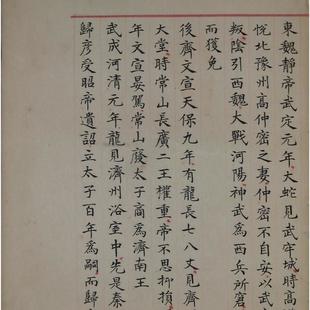 東魏靜帝武定元年大蛇見武牢城時高澄
悅北豫州高仲密之妻仲密不自安以武
叛陰引西魏大戰河陽神武為西兵所窘
而獲免
後齊文宣天保九年有龍長七八丈見齊
大堂時常山長廣二王權重帝不思抑損
年文宣晏駕常山廢太子商為濟南王
武成河清元年龍見濟州浴室中先是秦
歸彥受昭帝遺詔立太子百年為嗣而歸